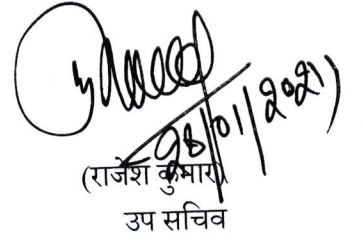 28/01/2021
(राजेश कुमार)
उप सचिव